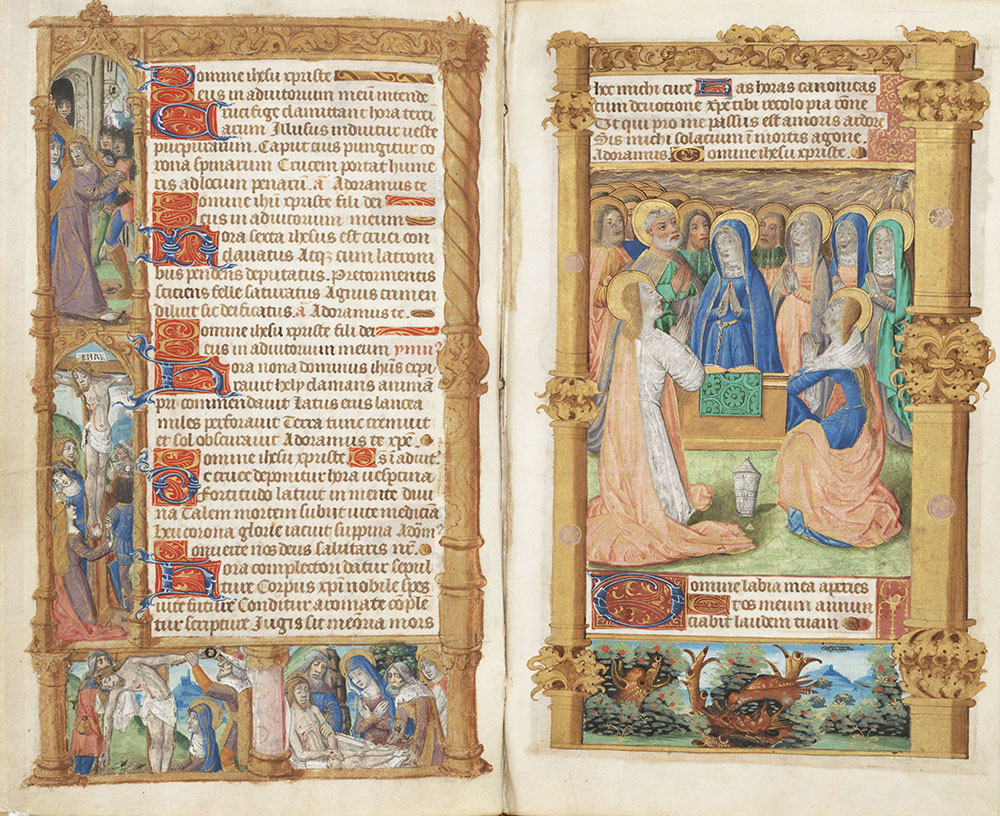 Domine ihesu xpriste
Deus in adiutorium meum intende
Crucifige clamittant hora terci
arum Illusus induitur ueste
purpurarum. Caput eius pungitur co
rona spinarum Crucem portat hume
ris ad locum penarum. a Adoramus te
Domine ihesu xpriste fili dei
Deus in adiutorium meum
Hora sexta ihesus est cruci con
clauatus Atque cum latroni
bus pendens deputatus. Pre tormentis
sciciens felle saturatus Agnus crimen
diluit sic deificatus. a Adoramus te.
Domine ihesu xpriste fili dei
Deus in adiutorium meum ymn9
Hora nona dominus ihus expi
rauit hely clamans animam
pri commendauit Latus eius lancea
miles perforauit Terra tunc tremuit
et sol obscurauit Adoramus te xpe.
Domine ihesu xpriste Ds i adiut9
De cruce deponitur hora uespertina
Fortitudo latuit in mente diui
na Talem mortem subiit uite medicina
heu corona glorie iacuit suppina Adom9
Conuerte nos deus salutaris nr.
Hora completorii datur sepul
ture Corpus xpi nobile spes
uite future Conditur aromate comple
tur scripture Jugis sit memoria mors
hec michi cure Has horas canonicas
cum deuotione xpe tibi recolo pia rone
Ut qui pro me passus est amoris ardore
Sis michi solacium in mortis agone
Adoramus. Domine ihesu xpriste.
Domine labia mea aperies
Et os meum annun
ciabit laudem tuam